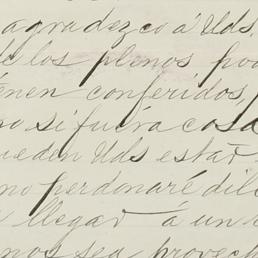 agradezco á Uds.
de los plenos po
enen conferidos,
o si fuéra cosa
ueden Uds estar
no perdonaré dil
llegar á un
nos sea provech